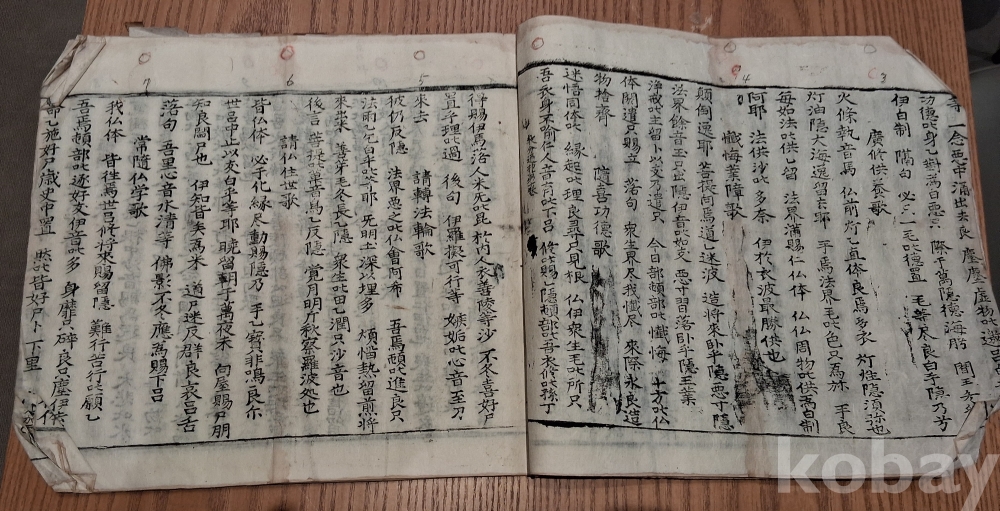 3
4
等 一念惡中涌出去良 塵塵虛物叱邀呂
功德叱身乙對爲白惡只 際于萬隱德海肹 間王冬
伊白制 隔句 必只一毛叱德置 毛等尽良白乎隱乃兮
廣修供養歌
火條執音馬 仏前灯乙直体良焉多衣 灯炷隱須弥也
灯油隱大海逸留去耶 手焉法界毛叱色只爲旀 手良
每如法叱供乙留 法界滿賜仁仏体 仏仏周物叱供爲白制
阿耶 法供沙叱多奈 伊於衣波最勝供也
懺悔業障歌
顛倒逸耶 菩提向焉道乙迷波 造將來卧乎隱惡寸隱
法界餘音玉只出隱伊音叱如支 惡寸習落卧乎隱三業
淨戒叱主留卜以支乃遣只 今日部頓部叱懺悔 十方叱仏
体閼遣只賜立 落句 衆生界尽我懺尽 來際永良造
物捨齊 隨喜功德歌
迷悟同体叱 緣起叱理良尋只見根 仏伊衆生毛叱所只
吾衣身不喩仁人音有叱下呂 修叱賜乙隱頓部叱吾衣修叱孫丁
5
6
7
得賜伊馬落人米无叱昆 於内人衣善陵等沙 不冬喜好尸
置乎理叱過 後句 伊羅擬可行等 嫉妬叱心音至刀
來去 請轉法輪歌
彼仍反隱 法界惡之叱仏會阿希 吾焉頓叱進良只
法雨乙乞白乎叱等耶 无明土深以埋多 煩惱熱留煎將
來出米 善芽毛冬長乙隱 衆生叱田乙潤只沙音也
後言 菩提叱菓音烏乙反隱 覺月明斤秋察羅波處也
請仏住世歌
皆仏体 必于化緣尽動賜隱乃 手乙寶非鳴良尔
世呂中止以友白乎等耶 曉留朝于萬夜未 向屋賜尸朋
知良閪尸也 伊知皆矣爲米 道尸迷反群良哀呂舌
落句 吾里心音水清等 佛影不冬應爲賜下呂
常隨仏学歌
我仏体 皆往焉世呂修將來賜留隱 難行苦行叱願乙
吾焉頓部叱逐好友伊音叱多 身靡只碎良只塵伊去米
命乙施好尸歲史中置 然叱皆好尸卜下里
kobay